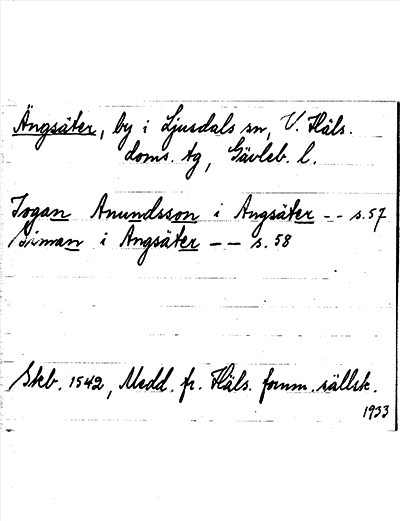 Ängsäter, by i Ljusdals sn, V. Häls.
doms. tg, Gävleb. l.
Jogan Anundsson i Angsäter -- s. 57
Siman i Angsäter -- s. 58
Skb. 1542, Medd. fr. Häls. fornm. sällsk.
1933